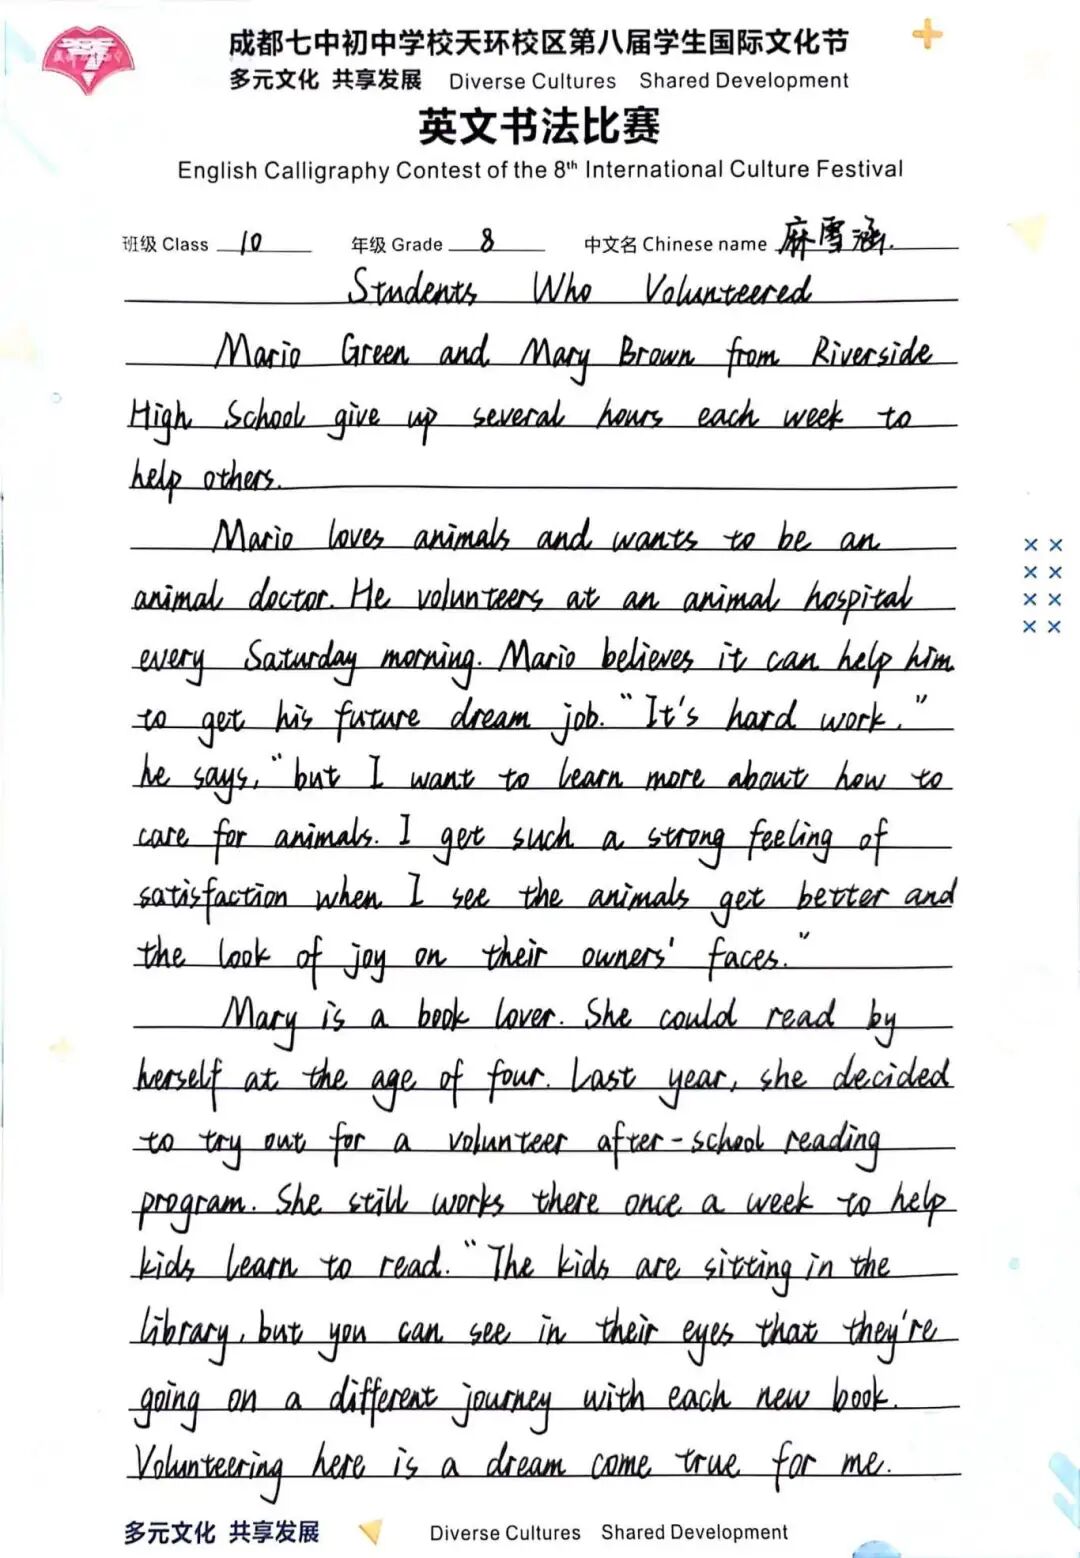 成都七中初中学校天环校区第八届学生国际文化节
多元文化 共享发展 Diverse Cultures Shared Development
英文书法比赛
English Calligraphy Contest of the 8th International Culture Festival
班级 Class 10 年级 Grade 8 中文名 Chinese name 麻雪涵.
Students Who Volunteered
Mario Green and Mary Brown from Riverside
High School give up several hours each week to
help others.
Mario loves animals and wants to be an
animal doctor. He volunteers at an animal hospital
every Saturday morning. Mario believes it can help him
to get his future dream job. "It's hard work,"
he says, "but I want to learn more about how to
care for animals. I get such a strong feeling of
satisfaction when I see the animals get better and
the look of joy on their owners' faces."
Mary is a book lover. She could read by
herself at the age of four. Last year, she decided
to try out for a volunteer after-school reading
program. She still works there once a week to help
kids learn to read. "The kids are sitting in the
library, but you can see in their eyes that they're
going on a different journey with each new book.
Volunteering here is a dream come true for me.
多元文化 共享发展 Diverse Cultures Shared Development